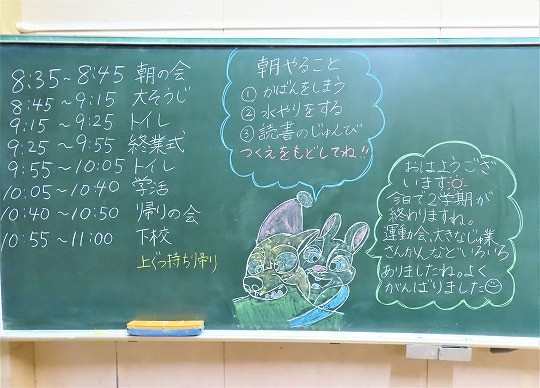 8:35~8:45 朝の会
8:45~9:15 大そうじ
9:15~9:25 トイレ
9:25~9:55 終業式
9:55~10:05 トイレ
10:05~10:40 学活
10:40~10:50 帰りの会
10:55~11:00 下校
上ぐつ持ち帰り
朝やること
① かばんをしまう
② 水やりをする
③ 読書のじゅんび
つくえをもどしてね!!
おはようござ
います
今日で2学期が
終わりますね。
運動会、大きなじゅ業
さんかん、などいろいろ
ありましたね。よく
がんばりました